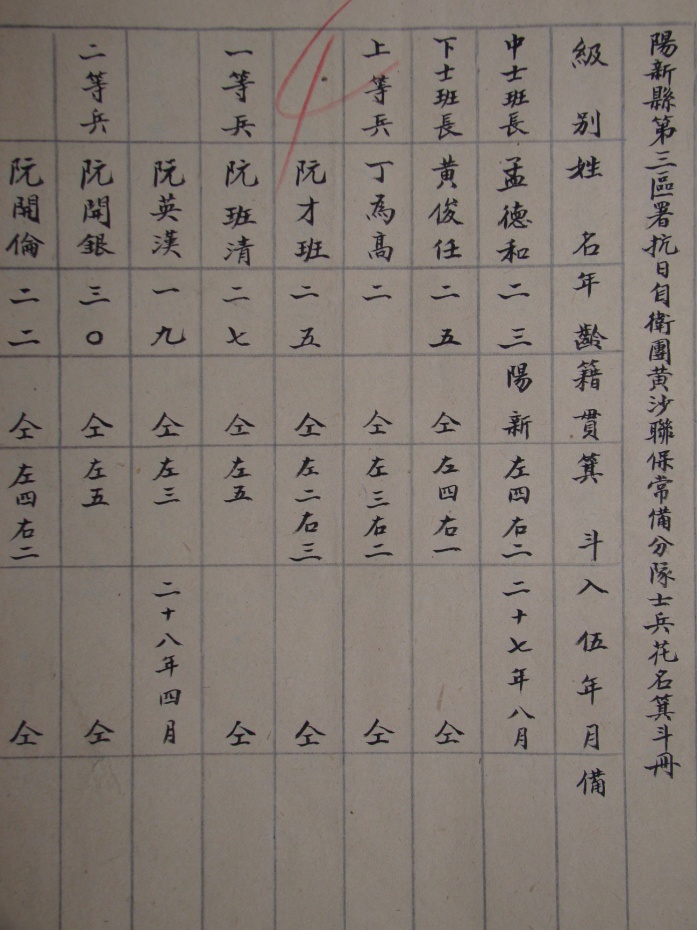 陽新縣第三區署抗日自衛團黃沙聯保常備分隊士兵花名箕斗冊
級別 姓名 年齡 籍貫 箕斗 入伍年月 備
中士班長 孟德和 二三 陽新 左四右二 二十七年八月
下士班長 黃俊任 二五 仝 左四右一 仝
上等兵 丁為高 二 仝 左三右二 仝
阮才班 二五 仝 左二右三 仝
一等兵 阮班清 二七 仝 左五 仝
阮英漢 一九 仝 左三 二十八年四月
二等兵 阮開銀 三〇 仝 左五 仝
阮開倫 二二 仝 左四右二 仝